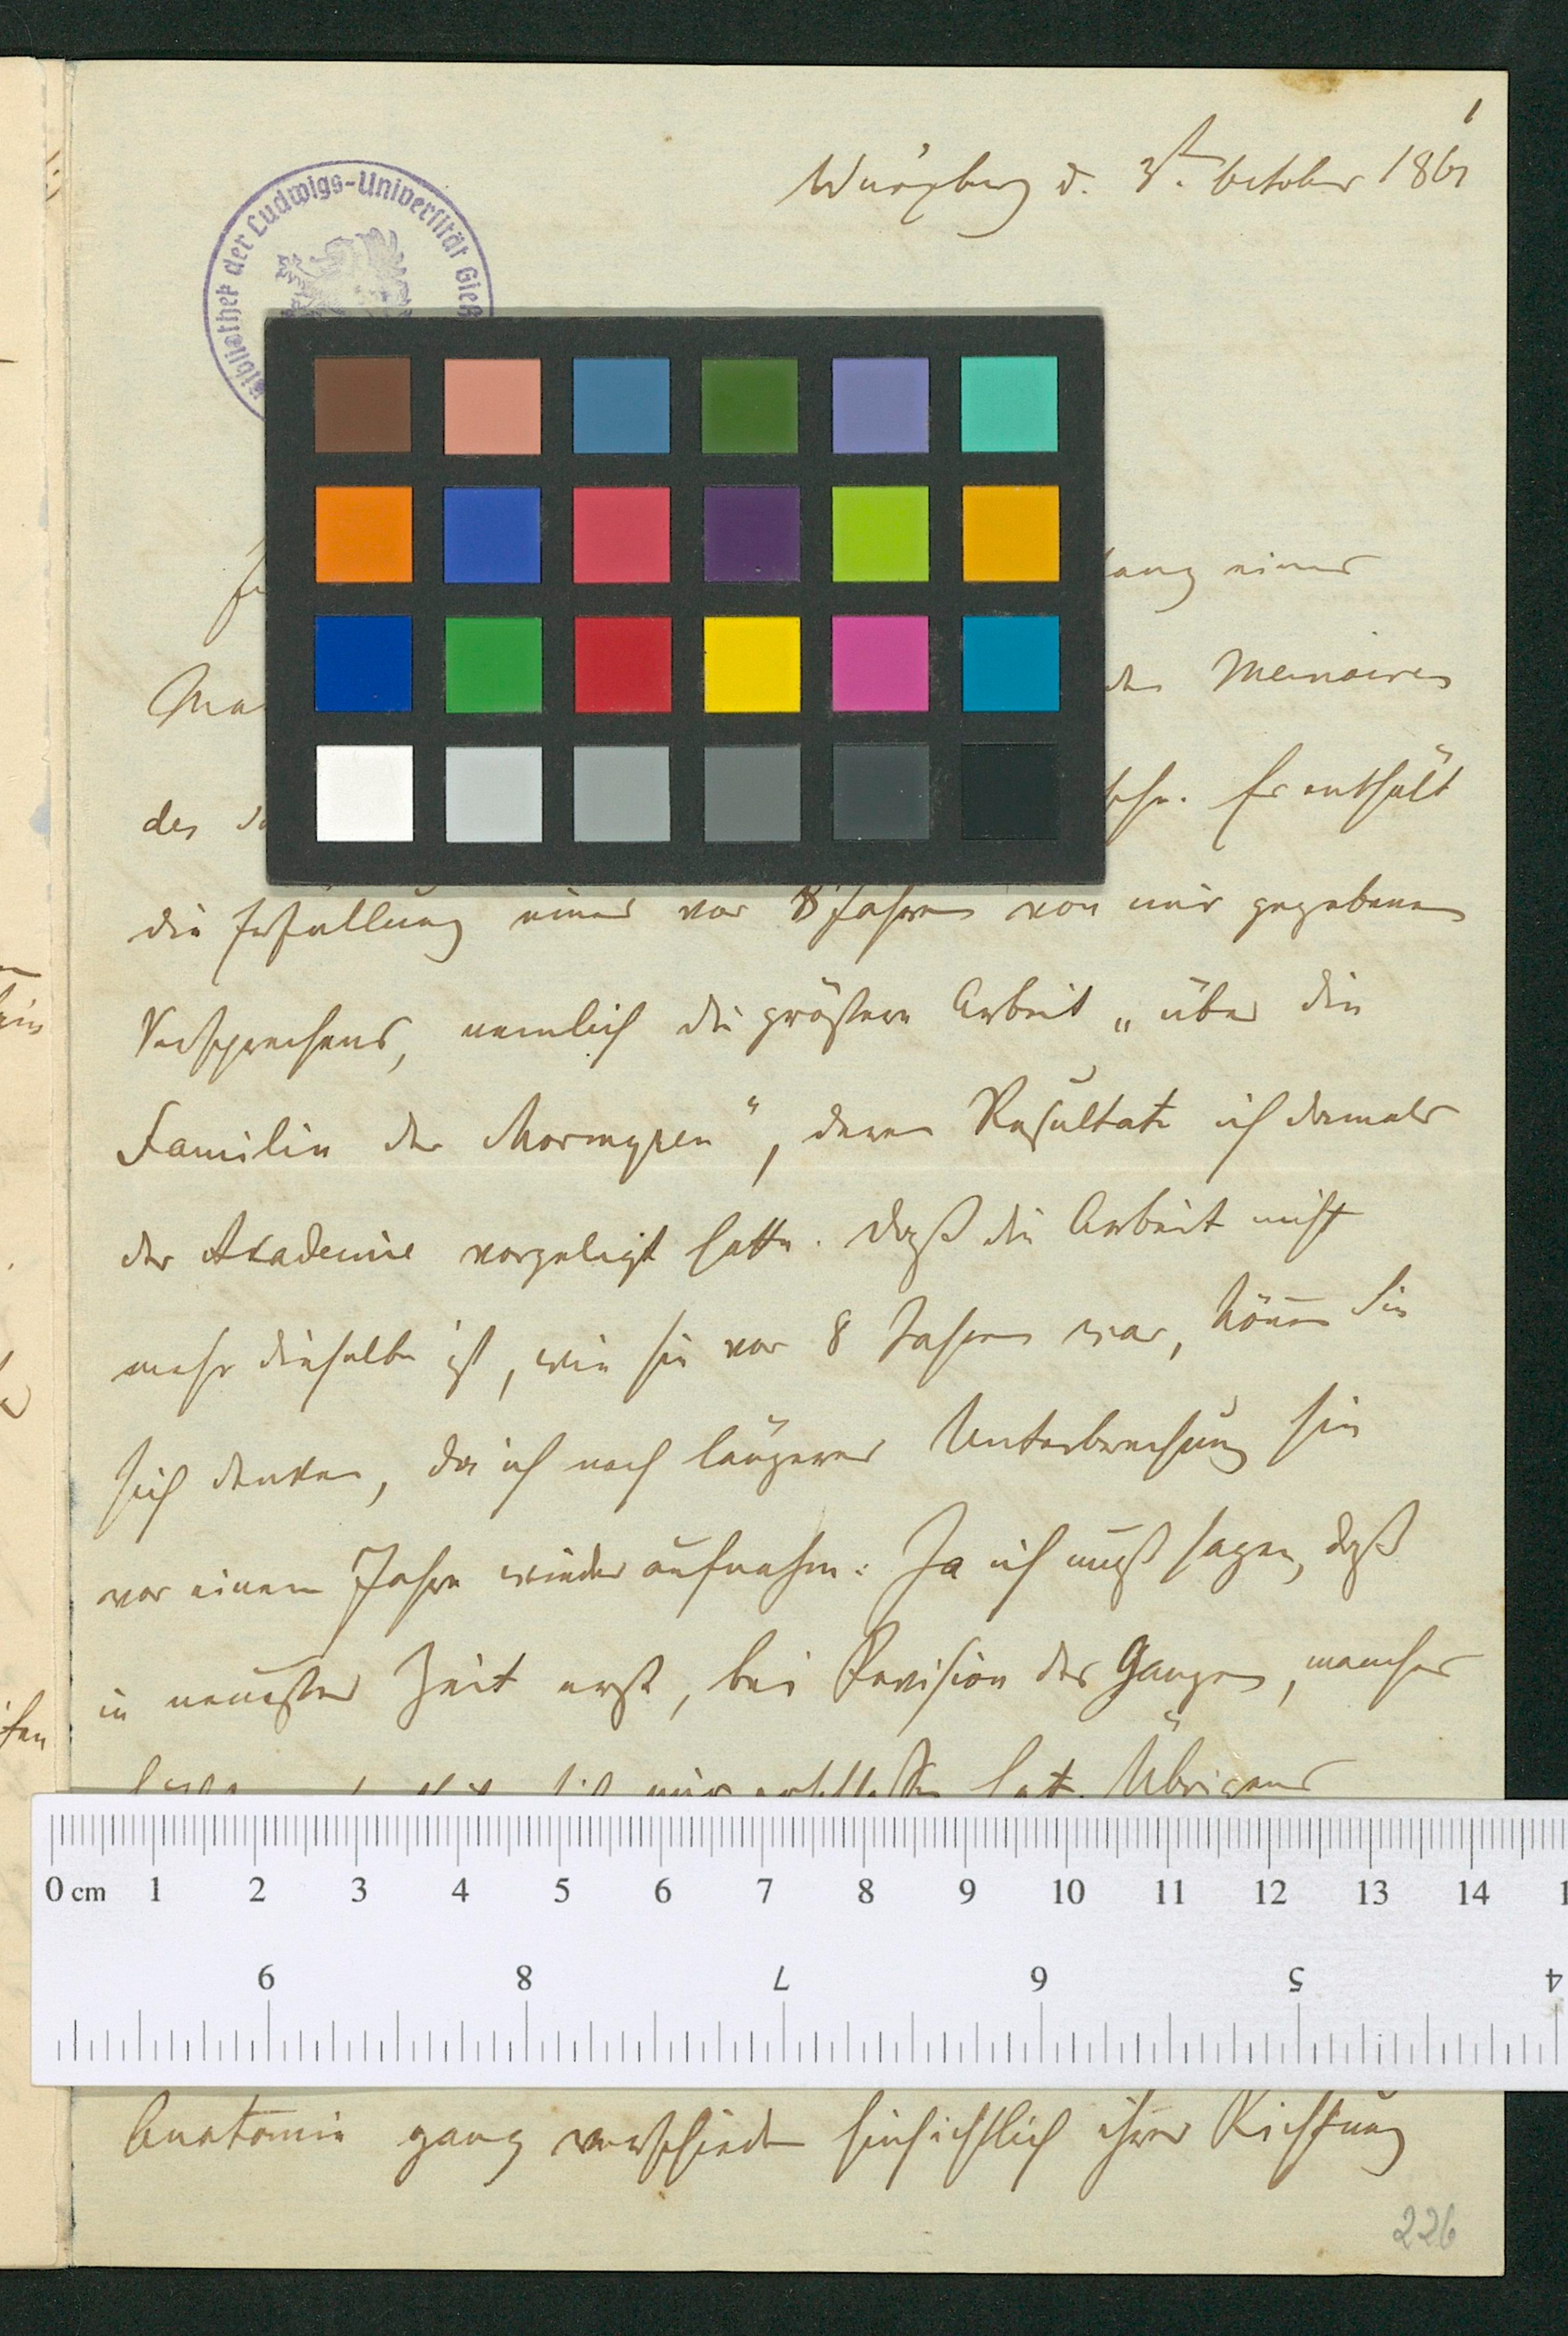 1
Würzburg d. 3t. October 1861
Bibliothek der Ludwigs-Universität Gieß
einer
der Memoires
des
Er enthält
die Erfüllung eines vor 8 Jahren von mir gegebenen
Versprechens, nemlich die größere Arbeit „über die
Familie der Mormyren“, deren Resultate ich damals
der Akademie vorgelegt hatte. Daß die Arbeit nicht
mehr dieselbe ist, wie sie vor 8 Jahren war, können Sie
sich denken, da ich nach längerer Unterbrechung sie
vor einem Jahre wieder aufnahm: Ja ich muß sagen, daß
in neuester Zeit erst, bei Revision des Ganzen, manches
mir hat. Übrigens
0 cm 1 2 3 4 5 6 7 8 9 10 11 12 13 14
9 8 7 6 5 4
Anatomie ganz verschieden hinsichtlich ihrer Richtung
226